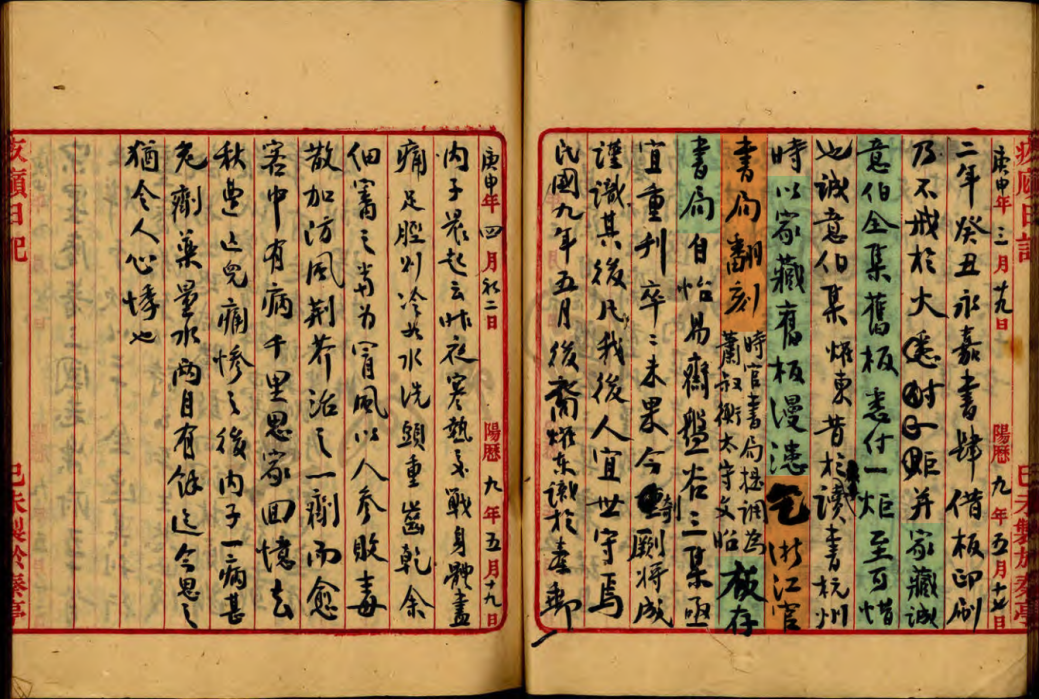 庚申年 三月廿九日 陽曆 九年五月十七日
二年癸丑永嘉書肆借板印刷
乃不戒於火 并家藏誠
意伯全集舊板悉付一炬至可惜
也誠意伯集燿東昔於讀書杭州
時以家藏舊板漫漶乞浙江官
書局翻刻 時官書局提調為蕭叔衡太守文昭 板存
書局自怡易齋盤谷三集亟
宜重刊卒二未果今 劂將成
謹識其後凡我後人宜世守焉
民國九年五月後裔燿東識於
庚申年 四月初二日 陽曆 九年五月十九日
內子晨起云昨夜寒熱交戰身體盡
痛足脛則冷如水洗頭重齒乾余
細審之當為冒風以人參敗毒
散加防風荊芥治之一劑而愈
客中有病千里思家回憶去
秋 兒痛慘之後內子一病甚
危劑藥量水兩目有餘 今思之
猶令人心悸也
疚廎日記
己未製於秦亭